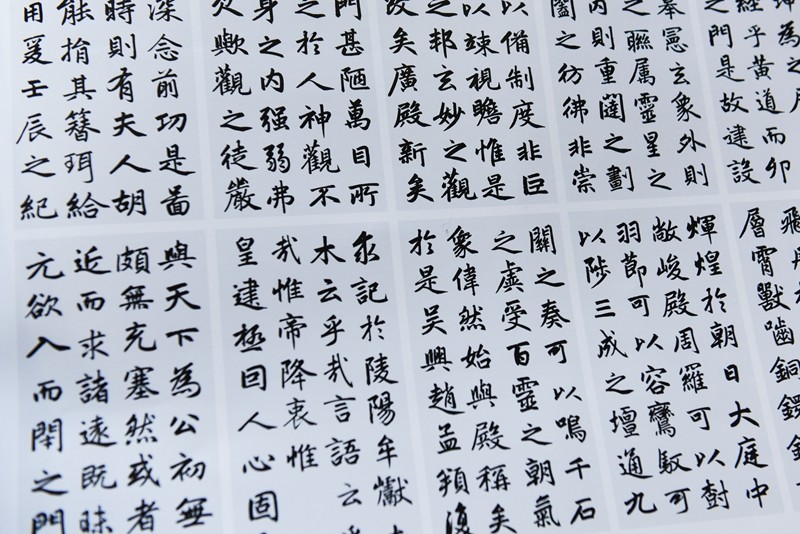 坤為之
經乎黃道而卯
之門是故建設
舉憲玄象外則
之聯属靈星之
内則重闥之劃
闔之彷彿非崇
以備制度非巨
以竦視瞻惟是
之邦玄妙之觀
改矣廣殿新矣
門甚陋萬目所
之於人神觀不
身之内强弱弗
欠歟觀之徒嚴
深念前功是啚
時則有夫人胡
能捐其簪珥給
用爰壬辰之紀
飛丹
層霄獸嚙銅鍔
輝煌於朝日大庭中
敞峻殿周羅可以樹
羽節可以容鸞馭可
以陟三成之壇通九
關之奏可以鳴千石
之虡受百靈之朝氣
象偉然始與殿稱矣
於是吳興趙孟頫復
求記於陵陽牟巘
木云乎哉言語云乎
哉惟帝降衷惟
皇建極回人心固
與天下為公初無
頗無充塞然或者
近而求諸遠既昧
元欲入而閉之門